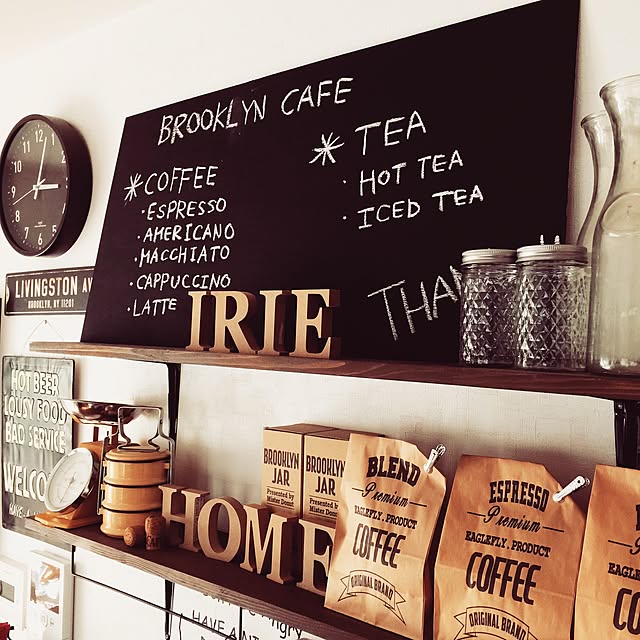 BROOKLYN CAFE
* COFFEE
· ESPRESSO
· AMERICANO
· MACCHIATO
· CAPPUCCINO
· LATTE
* TEA
· HOT TEA
· ICED TEA
THAN
12
1
2
3
4
5
6
7
8
9
10
11
LIVINGSTON AV
BROOKLYN, NY 11201
IRIE
HOT BEER
LOUSY FOOD
BAD SERVICE
WELCO
HOME
BROOKLYN
JAR
Presented by
Mister Donut
BROOKLYN
JAR
Presented by
Mister Donut
BLEND
Premium
EAGLEFLY. PRODUCT
COFFEE
ORIGINAL BRAND
ESPRESSO
Premium
EAGLEFLY. PRODUCT
COFFEE
ORIGINAL BRAND
HAVE A